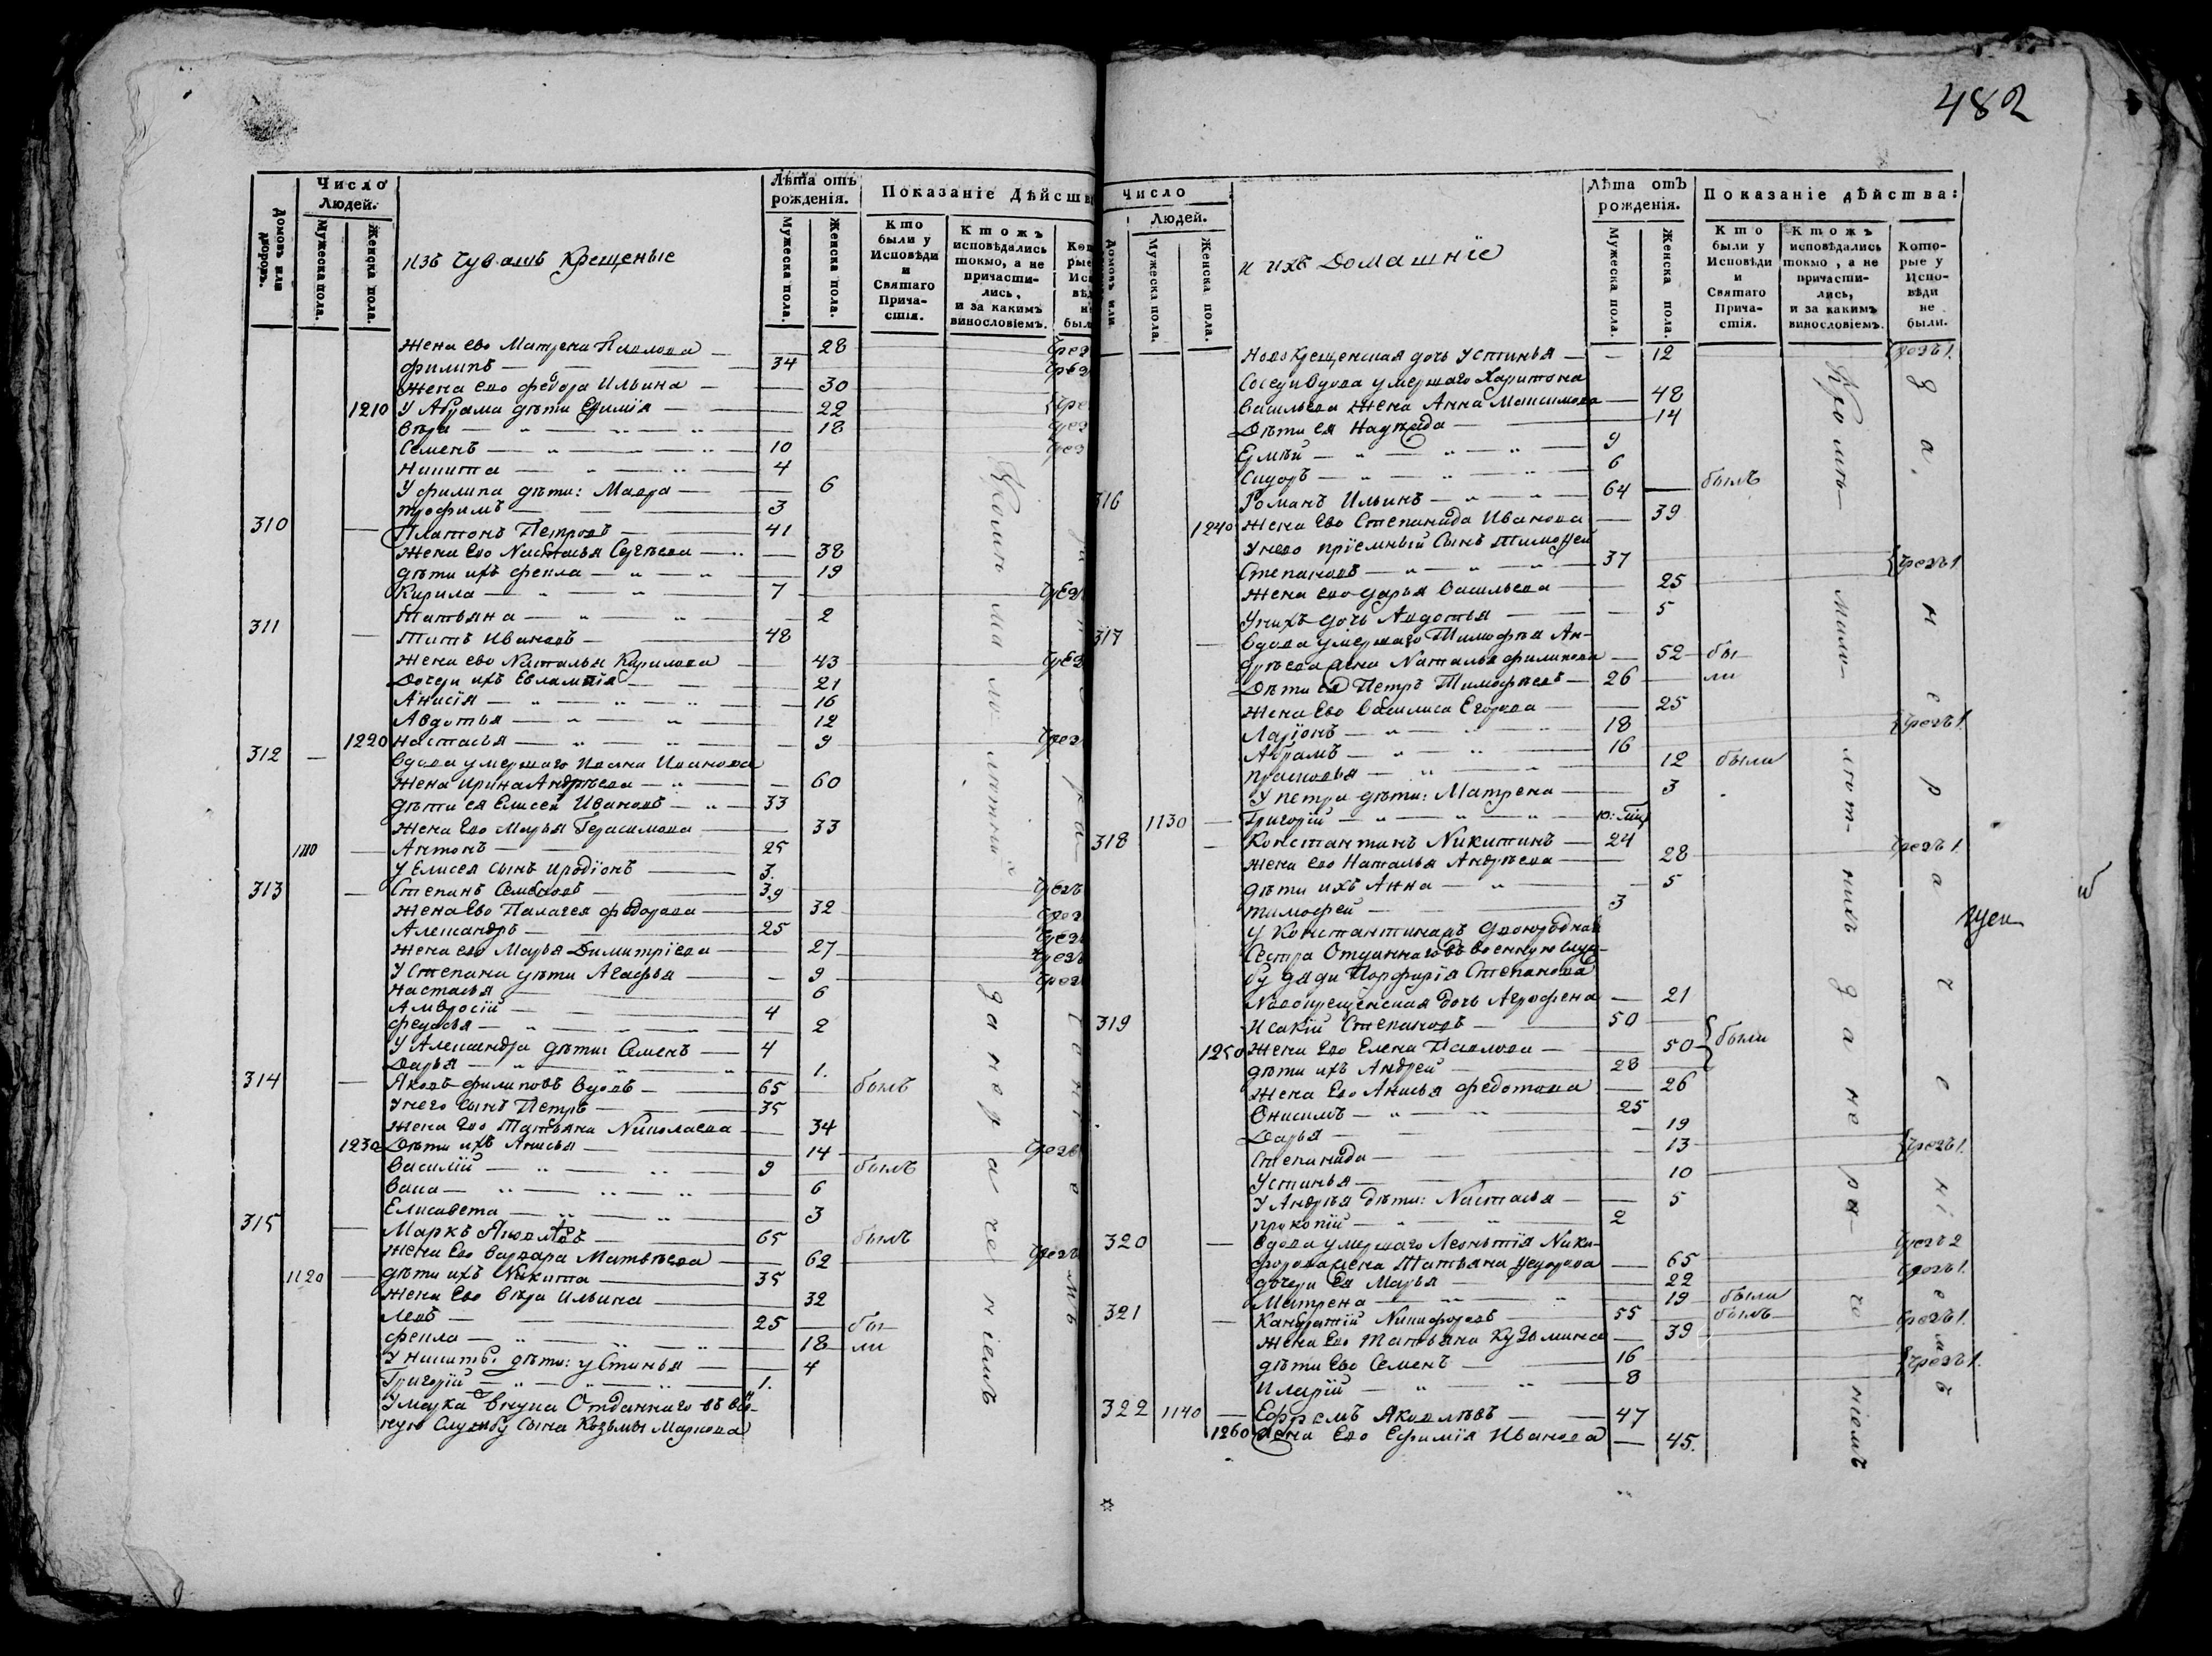 Число Людей.
Домовъ или дворовъ.
Мужеска пола.
Женска пола.
изъ Чувашъ Крещеные
Лѣта отъ рожденія.
Мужеска пола.
Женска пола.
Показаніе Дѣйств
Кто были у Исповѣди и Святаго Причастія.
Ктожъ исповѣдались токмо, а не причастились, и за какимъ винословіемъ.
жена ево Матрена Павлова — 28
Филипъ — 34
жена ево Федора Ильина — 30
1210 У Абрама дѣти Ефимія — 22
Вѣра — 18
Семенъ — 10
Никита — 4
У Филипа дѣти: Мавра — 6
Трофимъ — 3
310 — Платонъ Петровъ — 41
жена Ево Настасья Сергѣева — 38
дѣти ихъ Фекла — 19
Кирила — 7
Татьяна — 2
311 — Титъ Ивановъ — 48
жена ево Наталья Кирилова — 43
Дочери ихъ Евлампія — 21
Анисія — 16
Авдотья — 12
1220 Настасья — 9
312 — Вдова умершаго Ивана Иванова
жена Ирина Андрѣева — 60
дѣти ея Елисей Ивановъ — 33
жена Ево Марья Герасимова — 33
1110 — Антонъ — 25
У Елисея сынъ Иродіонъ — 3.
313 — Степанъ Семеновъ — 39
жена Ево Палагея Федорова — 32
Александръ — 25
жена ево Марья Димитріева — 27
У Степана дѣти Агафья — 9
Настасья — 6
Амвросій — 4
Федосья — 2
У Александра дѣти: Семенъ — 4
Дарья — 1.
314 — Яковъ Филиповъ вдовъ — 65 — былъ
У него сынъ Петръ — 35
жена Ево Татьяна Николаева — 34
1230 Дѣти ихъ Анисья — 14
Василій — 9 — былъ
Васа — 6
Елисавета — 3
315 — Маркъ Яковлевъ — 65 — былъ
жена Ево Варвара Матвѣева — 62
1120 — дѣти ихъ Никита — 35
жена Ево Вѣра Ильина — 32
Левъ — 25 — бы
Фекла — 18 — ли
У Никиты дѣти: Устинья — 4
Григорій — 1.
У Марка внука Отданнаго въ во-
ную Службу сына Козьмы Маркова
482
Число Людей.
Домовъ или
Мужеска пола.
Женска пола.
и ихъ Домашніе
Лѣта отъ рожденія.
Мужеска пола.
Женска пола.
Показаніе дѣйства:
Кто были у Исповѣди и Святаго Причастія.
Ктожъ исповѣдались токмо, а не причастились, и за какимъ винословіемъ.
Которые у Исповѣди не были.
Новокрещенская дочь Устинья — 12
вдова умершаго Харитона
Васильева жена Анна Максимова — 48
Дѣти ея Надежда — 14
9
Сидоръ — 6
316 Романъ Ильинъ — 64 — былъ
1240 жена Ево Степанида Иванова — 39
У нево пріемный сынъ Тимофей
Степановъ — 37
жена ево Дарья Васильева — 25
У нихъ дочь Авдотья — 5
317 — Вдова умершаго Тимофѣя Ан-
дрѣева жена Наталья Филипова — 52 — бы
Дѣти ея Петръ Тимофѣевъ — 26 — ли
жена Ево Василиса Егорова — 25
Ларіонъ — 18
Абрамъ — 16
Прасковья — 12 — были
У Петра дѣти: Матрена — 3
1130 — Григорій —
318 — Константинъ Никитинъ — 24
жена ево Наталья Андрѣева — 28
дѣти ихъ Анна — 5
Тимофей — 3
У Константина двоюродная
Сестра Отданнаго въ военную служ-
бу дяди Порфирія Степанова
Новокрещенская дочь Агрофена — 21
319 Исакій Степановъ — 50
1250 жена Ево Елена Павлова — 50 — были
дѣти ихъ Андрей — 28
жена Ево Анисья Федотова — 26
Онисимъ — 25
Дарья — 19
Степанида — 13
Устинья — 10
У Андрѣя дѣти: Настасья — 5
Прокопій — 2
320 — Вдова умершаго Леонтія Ники-
форова жена Татьяна Федорова — 65
дочери ея Марья — 22
Матрена — 19 — были
321 — Кандратій Никифоровъ — 55 — былъ
жена Ево Татьяна Кузьмина — 39
дѣти Ево Семенъ — 16
Иларій — 8
322 1140 — Ефремъ Яковлевъ — 47
1260 жена Ево Ефимія Иванова — 45.